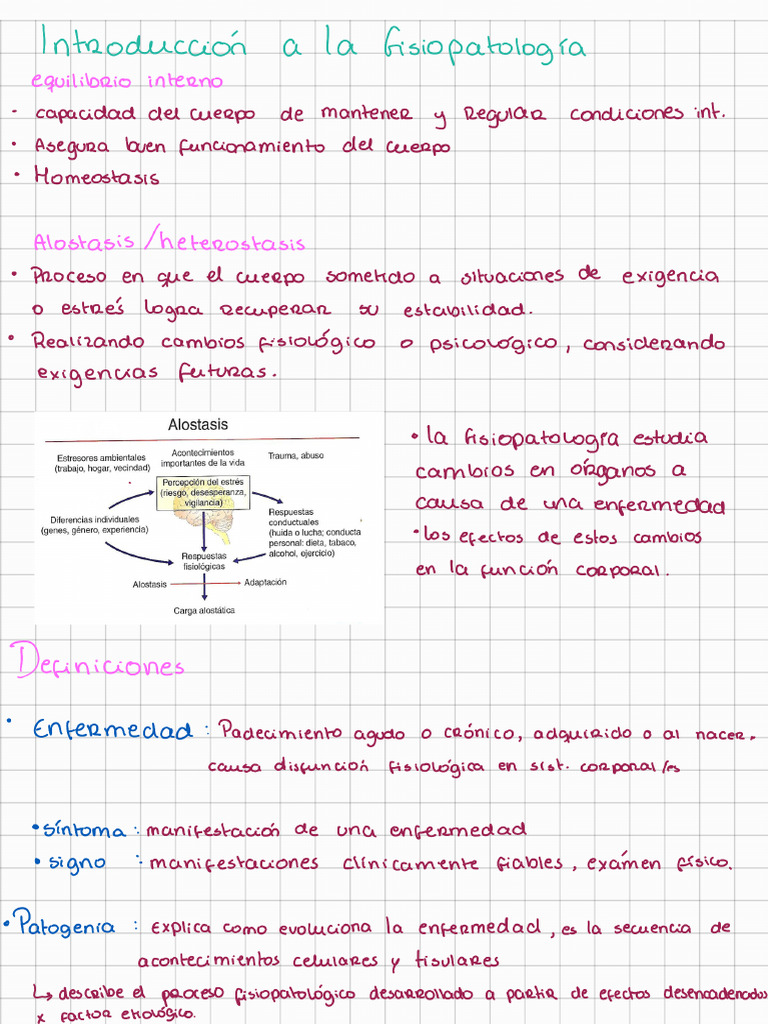 Introducción a la fisiopatología
equilibrio interno
• capacidad del cuerpo de mantener y regular condiciones int.
• Asegura buen funcionamiento del cuerpo
• Homeostasis
Alostasis /heterostasis
• Proceso en que el cuerpo sometido a situaciones de exigencia
o estrés logra recuperar su estabilidad.
• Realizando cambios fisiológico o psicológico, considerando
exigencias futuras.
Alostasis
Estresores ambientales
(trabajo, hogar, vecindad)
Acontecimientos
importantes de la vida
Trauma, abuso
Percepción del estrés
(riesgo, desesperanza,
vigilancia)
Diferencias individuales
(genes, género, experiencia)
Respuestas
conductuales
(huida o lucha; conducta
personal: dieta, tabaco,
alcohol, ejercicio)
Respuestas
fisiológicas
Alostasis
Adaptación
Carga alostática
• la fisiopatología estudia
cambios en órganos a
causa de una enfermedad
• los efectos de estos cambios
en la función corporal.
Definiciones
• Enfermedad : Padecimiento agudo o crónico, adquirido o al nacer.
causa disfunción fisiológica en sist. corporal/es
• síntoma : manifestación de una enfermedad
• signo : manifestaciones clínicamente fiables, exámen físico.
• Patogenia : Explica como evoluciona la enfermedad, es la secuencia de
acontecimientos celulares y tisulares
↳ describe el proceso fisiopatológico desarrollado a partir de efectos desencadenados
x factor etiológico.